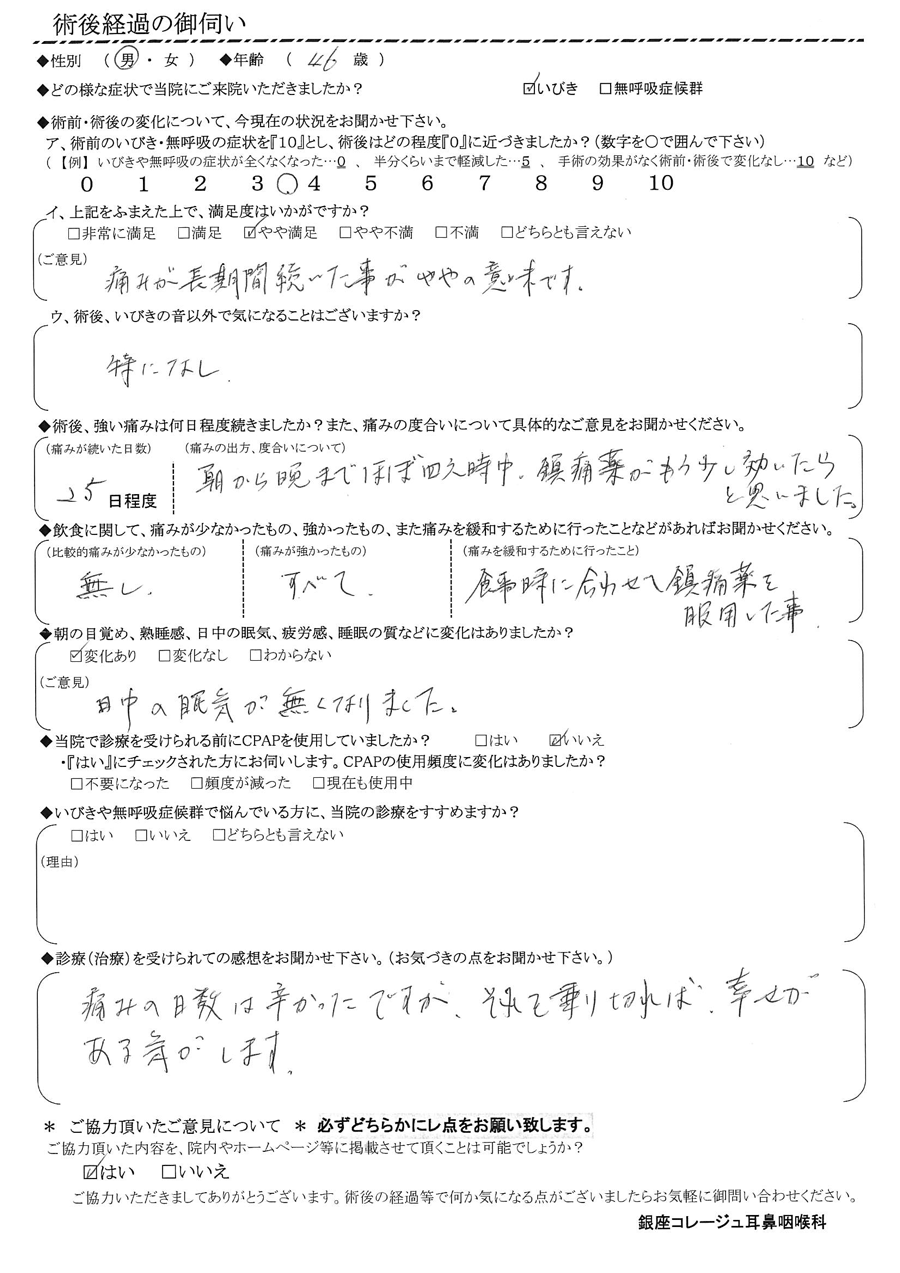 術後経過の御伺い
◆性別 (男・女) ◆年齢 (46歳)
◆どの様な症状で当院にご来院いただきましたか? ☑いびき □無呼吸症候群
◆術前・術後の変化について、今現在の状況をお聞かせ下さい。
ア、術前のいびき・無呼吸の症状を『10』とし、術後はどの程度『0』に近づきましたか?(数字を○で囲んで下さい)
(【例】いびきや無呼吸の症状が全くなくなった…0 、 半分くらいまで軽減した…5 、 手術の効果がなく術前・術後で変化なし…10 など)
0 1 2 3 ○ 4 5 6 7 8 9 10
イ、上記をふまえた上で、満足度はいかがですか?
□非常に満足 □満足 ☑やや満足 □やや不満 □不満 □どちらとも言えない
(ご意見)
痛みが長期間続いた事がややの意味です。
ウ、術後、いびきの音以外で気になることはございますか?
特になし.
◆術後、強い痛みは何日程度続きましたか?また、痛みの度合いについて具体的なご意見をお聞かせください。
(痛みが続いた日数) (痛みの出方、度合いについて)
25日程度 朝から晩までほぼ四六時中。鎮痛薬がもう少し効いたら
と思いました。
◆飲食に関して、痛みが少なかったもの、強かったもの、また痛みを緩和するために行ったことなどがあればお聞かせください。
(比較的痛みが少なかったもの) (痛みが強かったもの) (痛みを緩和するために行ったこと)
無し. すべて. 食事時に合わせて鎮痛薬を
服用した事.
◆朝の目覚め、熟睡感、日中の眠気、疲労感、睡眠の質などに変化はありましたか?
☑変化あり □変化なし □わからない
(ご意見)
日中の眠気が無くなりました。
◆当院で診療を受けられる前にCPAPを使用していましたか? □はい ☑いいえ
・『はい』にチェックされた方にお伺いします。CPAPの使用頻度に変化はありましたか?
□不要になった □頻度が減った □現在も使用中
◆いびきや無呼吸症候群で悩んでいる方に、当院の診療をすすめますか?
□はい □いいえ □どちらとも言えない
(理由)
◆診療(治療)を受けられての感想をお聞かせ下さい。(お気づきの点をお聞かせ下さい。)
痛みの日数は辛かったですが、それを乗り切れば、幸せが
ある気がします.
* ご協力頂いたご意見について * 必ずどちらかにレ点をお願い致します。
ご協力頂いた内容を、院内やホームページ等に掲載させて頂くことは可能でしょうか?
☑はい □いいえ
ご協力いただきましてありがとうございます。術後の経過等で何か気になる点がございましたらお気軽に御問い合わせください。
銀座コレージュ耳鼻咽喉科